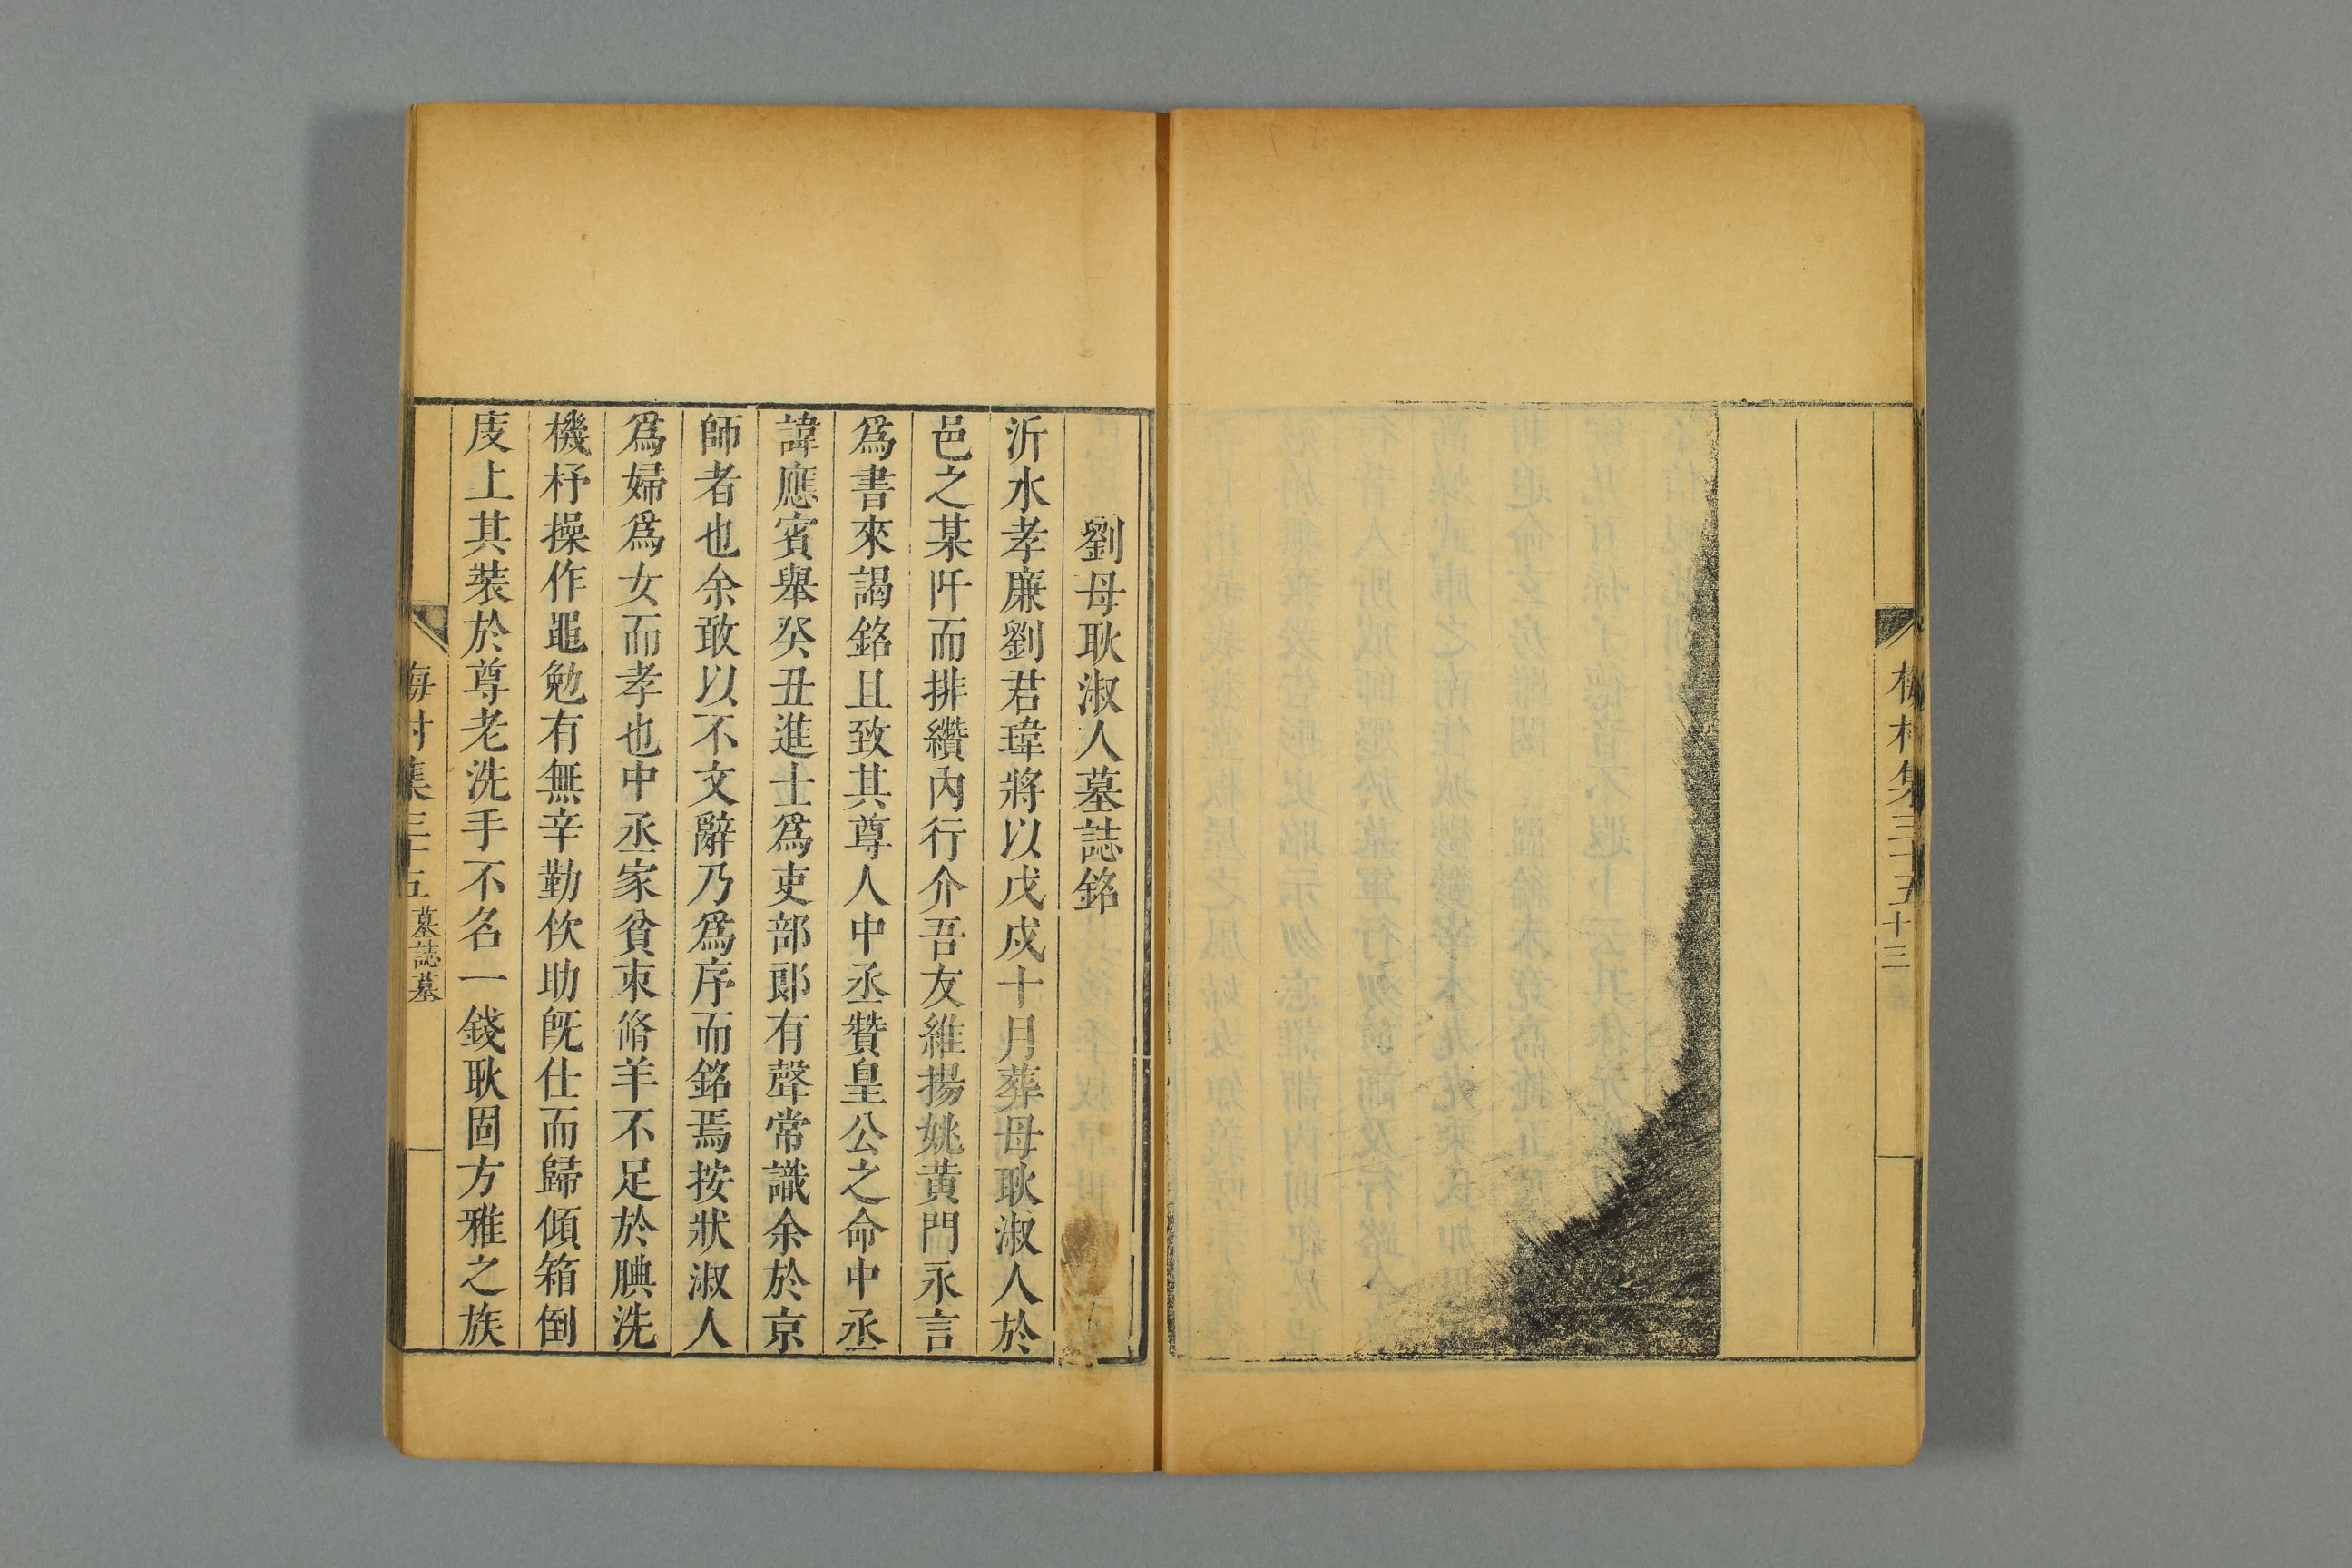 梅村集三十五 十三
劉母耿淑人墓誌銘
沂水孝廉劉君瑋將以戊戌十月葬母耿淑人於
邑之某阡而排纘內行介吾友維揚姚黃門永言
爲書來謁銘且致其尊人中丞贊皇公之命中丞
諱應賓舉癸丑進士爲吏部郞有聲常識余於京
師者也余敢以不文辭乃爲序而銘焉按狀淑人
爲婦爲女而孝也中丞家貧束脩羊不足於腆洗
機杼操作黽勉有無辛勤佽助旣仕而歸傾箱倒
庋上其裝於尊老洗手不名一錢耿固方雅之族
梅村集三十五 墓誌墓